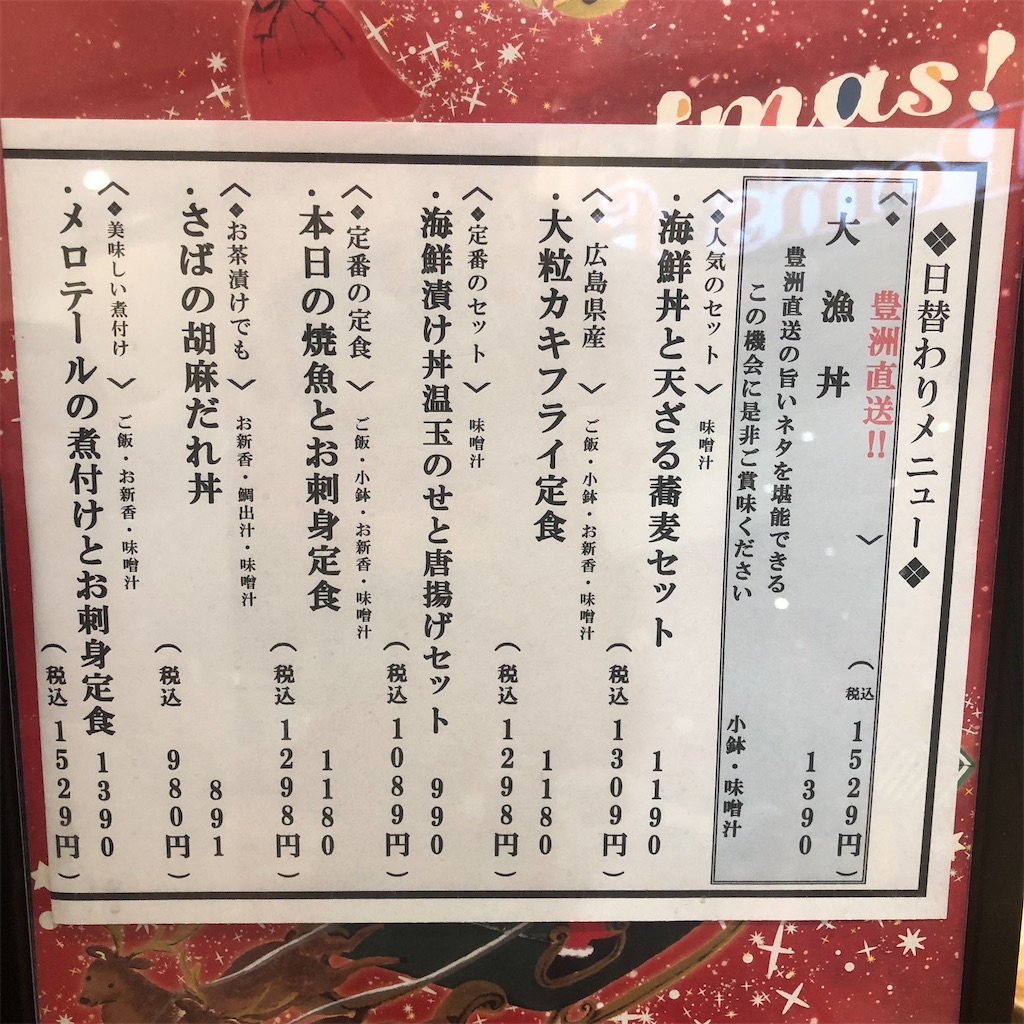 'mas!
❖日替わりメニュー❖
〈◆ 豊洲直送!! 〉
・大漁丼
豊洲直送の旨いネタを堪能できる
この機会に是非ご賞味ください
1390
(税込1529円)
小鉢・味噌汁
〈◆人気のセット〉味噌汁
・海鮮丼と天ざる蕎麦セット
1190
(税込1309円)
〈◆広島県産〉ご飯・小鉢・お新香・味噌汁
・大粒カキフライ定食
1180
(税込1298円)
〈◆定番のセット〉味噌汁
・海鮮漬け丼温玉のせと唐揚げセット
990
(税込1089円)
〈◆定番の定食〉ご飯・小鉢・お新香・味噌汁
・本日の焼魚とお刺身定食
1180
(税込1298円)
〈◆お茶漬けでも〉お新香・鯛出汁・味噌汁
・さばの胡麻だれ丼
891
(税込980円)
〈◆美味しい煮付け〉ご飯・お新香・味噌汁
・メロテールの煮付けとお刺身定食
1390
(税込1529円)